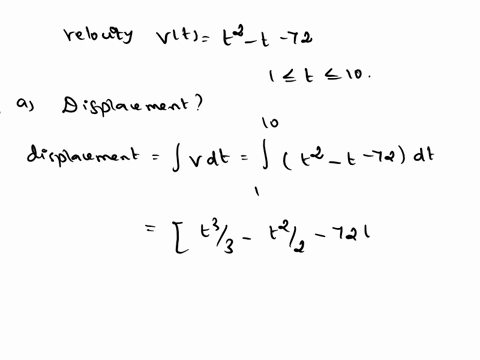 velocity v(t) = t² - t - 72
1 ≤ t ≤ 10.
a) Displacement?
10
displacement = ∫ v dt = ∫ (t² - t - 72) dt
1
= [ t³/3 - t²/2 - 72 l